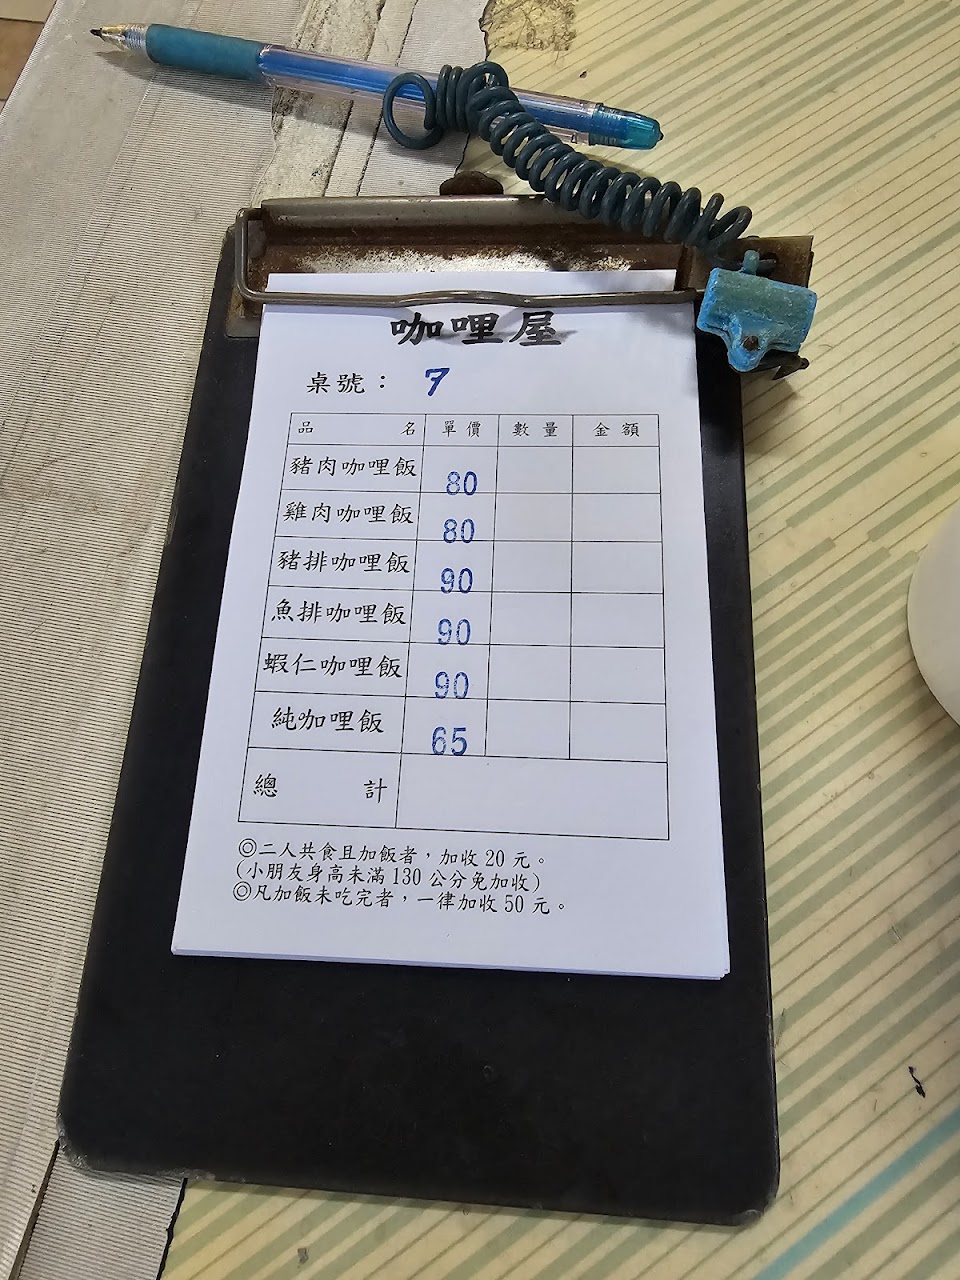 咖哩屋
桌號： 7
品名 單價 數量 金額
豬肉咖哩飯 80
雞肉咖哩飯 80
豬排咖哩飯 90
魚排咖哩飯 90
蝦仁咖哩飯 90
純咖哩飯 65
總計
◎二人共食且加飯者，加收 20 元。
(小朋友身高未滿 130 公分免加收)
◎凡加飯未吃完者，一律加收 50 元。